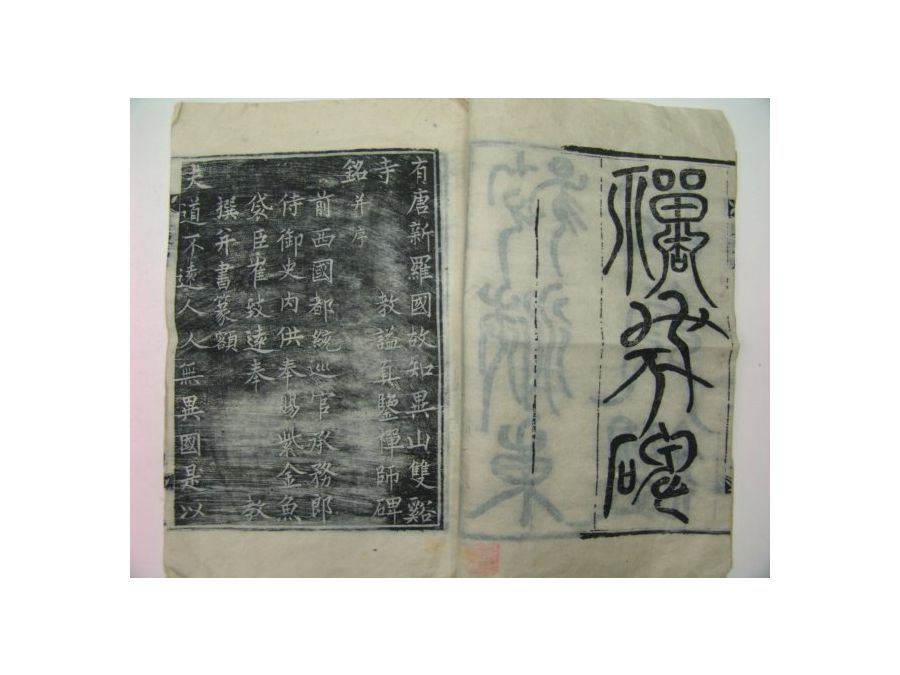 禪師碑
有唐新羅國故知異山雙谿
寺 教謚真鑒禪師碑
銘 并序
前西國都統巡官承務郎
侍御史内供奉賜紫金魚
袋臣崔致遠奉 教
撰并書篆額
夫道不遠人人無異國是以